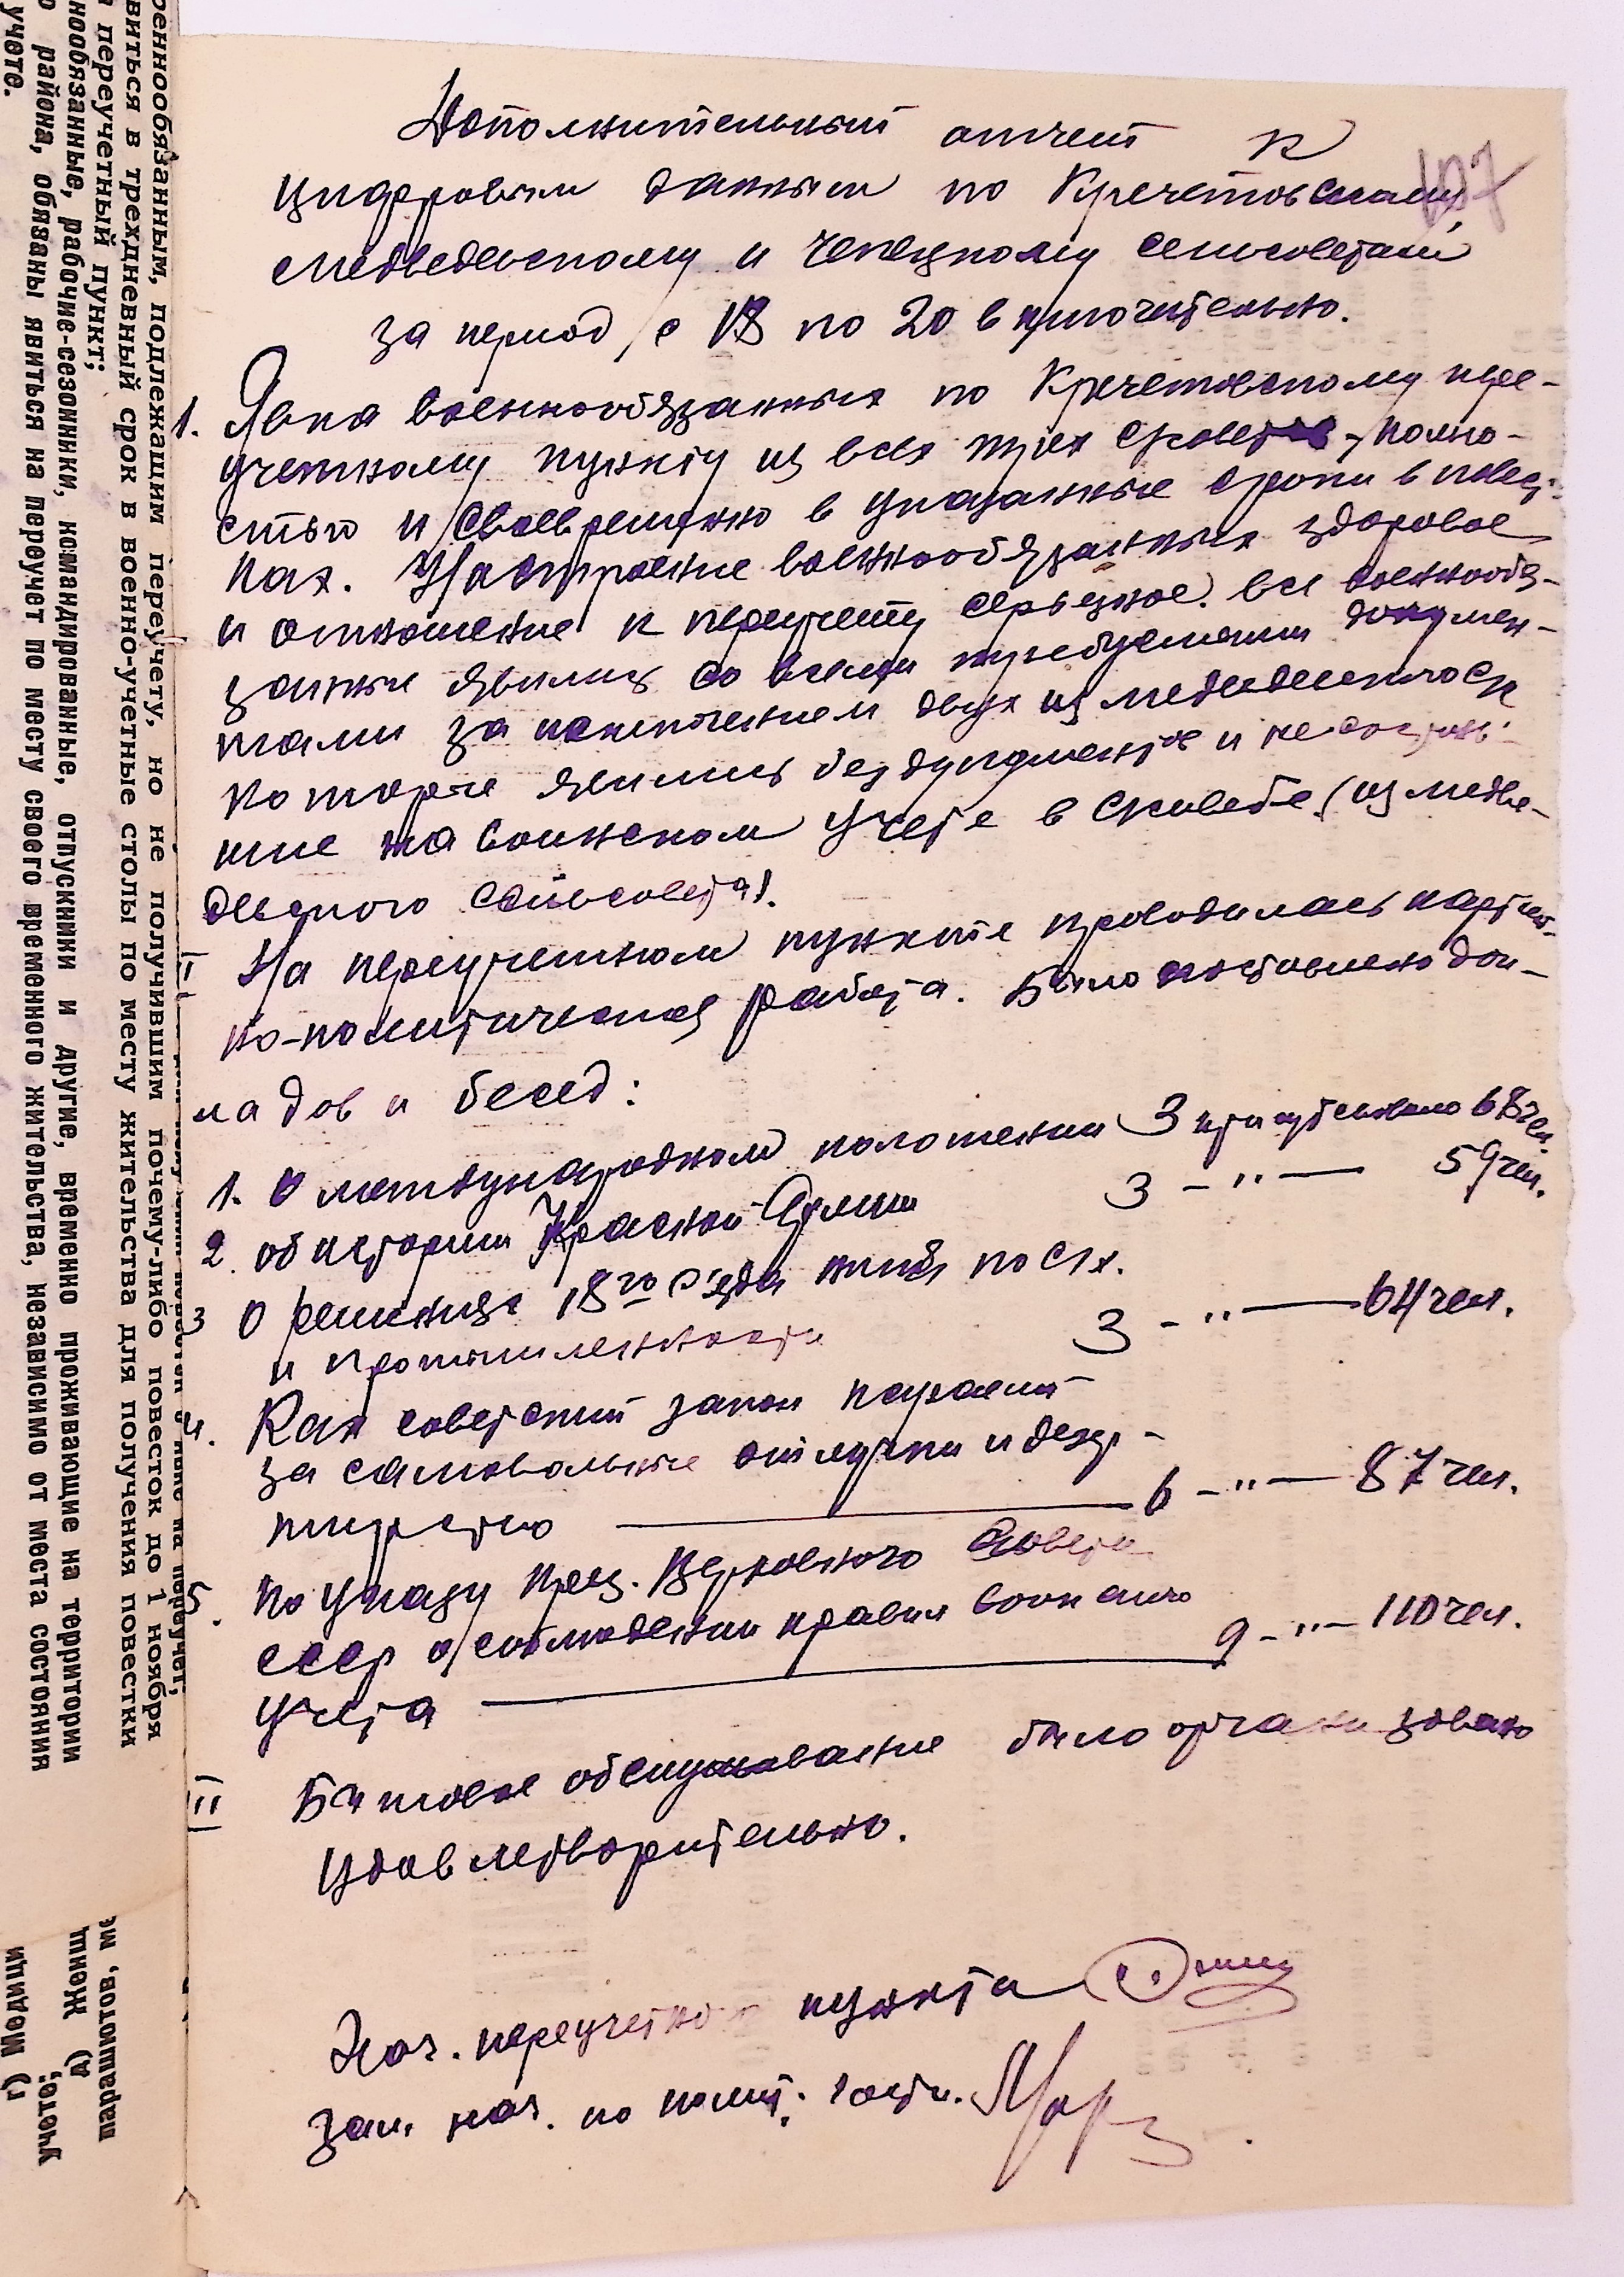 Дополнительный отчет к
цифровым данным по Кречетовскому,
Медведевскому и Чепецкому сельсоветам
за период с 18 по 20 включительно.
1. Явка военнообязанных по Кречетовскому пере-
учетному пункту из всех трех с/советов, полно-
стью и своевременно в указанные сроки в повест-
ках. Настроение военнообязанных здоровое
и отношение к переучету серьезное. все военнообя-
занные явились со всеми требуемыми докумен-
тами за исключением двух из Медведевского с/с
которые явились без документов и не состояв-
шие на воинском учете в с/совете (из Медве-
девского сельсовета).
II На переучетном пункте проводилась партий-
но-политическая работа. Было поставлено док-
ладов и бесед:
1. О международном положении 3 присутствовало 68 чел.
2. об истории Красной Армии 3 - " - 59 чел.
3 О решениях 18го с'езда по с/х.
и промышленности 3 - " - 64 чел.
4. Как советский закон карает
за самовольные отлучки и дезер-
тирство 6 - " - 87 чел.
5. По указу през. Верховного Совета
СССР о соблюдении правил воинского
учета 9 - " - 110 чел.
III Бытовое обслуживание было организовано
удовлетворительно.
Нач. переучетного пункта
Зам. нач. по полит. части.
107
военнообязанным, подлежащим переучету, но не получившим почему-либо повесток до 1 ноября
явиться в трехдневный срок в военно-учетные столы по месту жительства для получения повестки
переучетный пункт;
нообязанные, рабочие-сезонники, командированные, отпускники и другие, временно проживающие на территории
района, обязаны явиться на переучет по месту своего временного жительства, независимо от места состояния
учете.